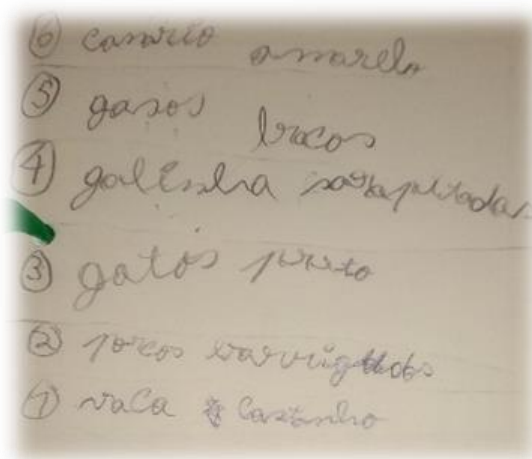 ⑥ canario amarelo
⑤ gasos bracos
④ galinha sarapitadas
③ gatos preto
② porcos
① vaca castanho